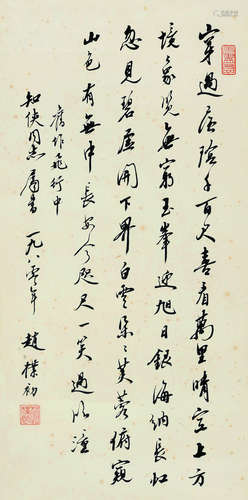 穿過層陰千百丈喜看萬里晴空上方
境象覽無窮玉峯迎旭日銀海納長虹
忽見碧虛開下界白雲朵朵芙蓉俯窺
山色有無中長安今咫尺一笑過臨潼
舊作飛行中
知俠同志屬書 一九八零年 趙樸初